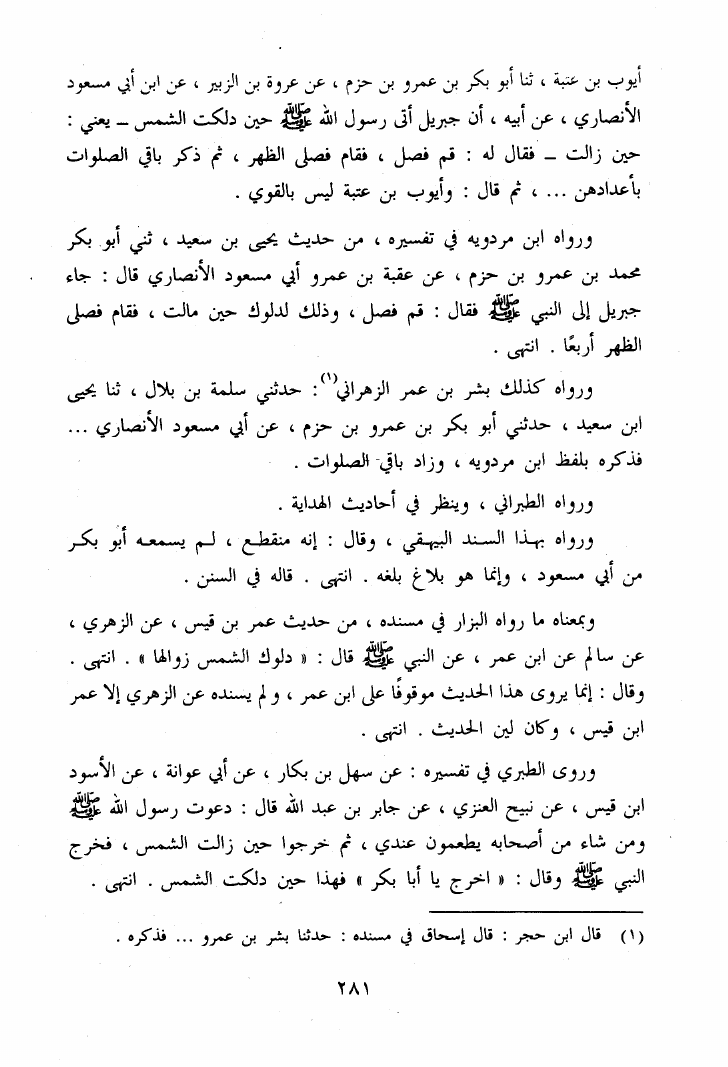 أيوب بن عتبة ، ثنا أبو بكر بن عمرو بن حزم ، عن عروة بن الزبير ، عن ابن أبي مسعود
الأنصاري ، عن أبيه ، أن جبريل أتى رسول الله ﷺ حين دلكت الشمس ــ يعني :
حين زالت ــ فقال له : قم فصل ، فقام فصلى الظهر ، ثم ذكر باقي الصلوات
بأعدادهن ... ، ثم قال : وأيوب بن عتبة ليس بالقوي .
ورواه ابن مردويه في تفسيره ، من حديث يحيى بن سعيد ، ثني أبو بكر
محمد بن عمرو بن حزم ، عن عقبة بن عمرو أبي مسعود الأنصاري قال : جاء
جبريل إلى النبي ﷺ فقال : قم فصل ، وذلك لدلوك حين مالت ، فقام فصلى
الظهر أربعًا . انتهى .
ورواه كذلك بشر بن عمر الزهراني(١) : حدثني سلمة بن بلال ، ثنا يحيى
ابن سعيد ، حدثني أبو بكر بن عمرو بن حزم ، عن أبي مسعود الأنصاري ...
فذكره بلفظ ابن مردويه ، وزاد باقي الصلوات .
ورواه الطبراني ، وينظر في أحاديث الهداية .
ورواه بهذا السند البيهقي ، وقال : إنه منقطع ، لم يسمعه أبو بكر
من أبي مسعود ، وإنما هو بلاغ بلغه . انتهى . قاله في السنن .
وبمعناه ما رواه البزار في مسنده ، من حديث عمر بن قيس ، عن الزهري ،
عن سالم عن ابن عمر ، عن النبي ﷺ قال : « دلوك الشمس زوالها » . انتهى .
وقال : إنما يروى هذا الحديث موقوفًا على ابن عمر ، ولم يسنده عن الزهري إلا عمر
ابن قيس ، وكان لين الحديث . انتهى .
وروى الطبري في تفسيره : عن سهل بن بكار ، عن أبي عوانة ، عن الأسود
ابن قيس ، عن نبيح العنزي ، عن جابر بن عبد الله قال : دعوت رسول الله ﷺ
ومن شاء من أصحابه يطعمون عندي ، ثم خرجوا حين زالت الشمس ، فخرج
النبي ﷺ وقال : « اخرج يا أبا بكر » فهذا حين دلكت الشمس . انتهى .
(١) قال ابن حجر : قال إسحاق في مسنده : حدثنا بشر بن عمرو ... فذكره .
٢٨١